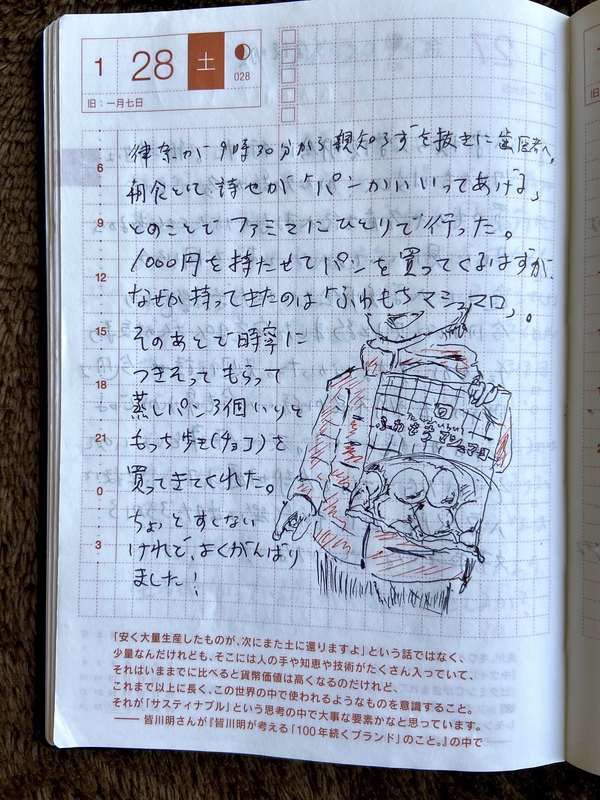 1 28 土
028
旧：一月七日
律奈が9時30分から親知らずを抜きに歯医者へ。
朝食として 「パンかいいってあげる」
とのことでファミマにひとりで行った。
1000円を持たせてパンを買ってくるはずが、
なぜか持ってきたのは「ふわもちマシュマロ」。
そのあとで時寧に
つきそってもらって
蒸しパン3個いりと
もっち (チョコ)を
買ってきてくれた。
ちょっとすくない
けれど、よくがんばり
ました!
ふわもちマシュマロ
6
9
12
15
18
21
0
3
「安く大量生産したものが、次にまた土に還りますよ」という話ではなく、
少量なんだけれども、そこには人の手や知恵や技術がたくさん入っていて、
それはいままでに比べると貨幣価値は高くなるのだけれど、
これまで以上に長く、この世界の中で使われるようなものを意識すること。
それが「サスティナブル」という思考の中で大事な要素かなと思っています。
―― 皆川明さんが『皆川明が考える「100年続くブランド」のこと。』の中で